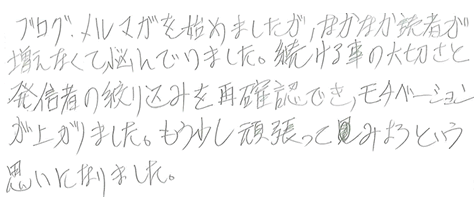 ブログ・メルマガを始めましたが,なかなか読者が
増えなくて悩んでいました。続ける事の大切さと
発信者の絞り込みを再確認でき,モチベーション
が上がりました。もう少し頑張ってみようという
思いとなりました。